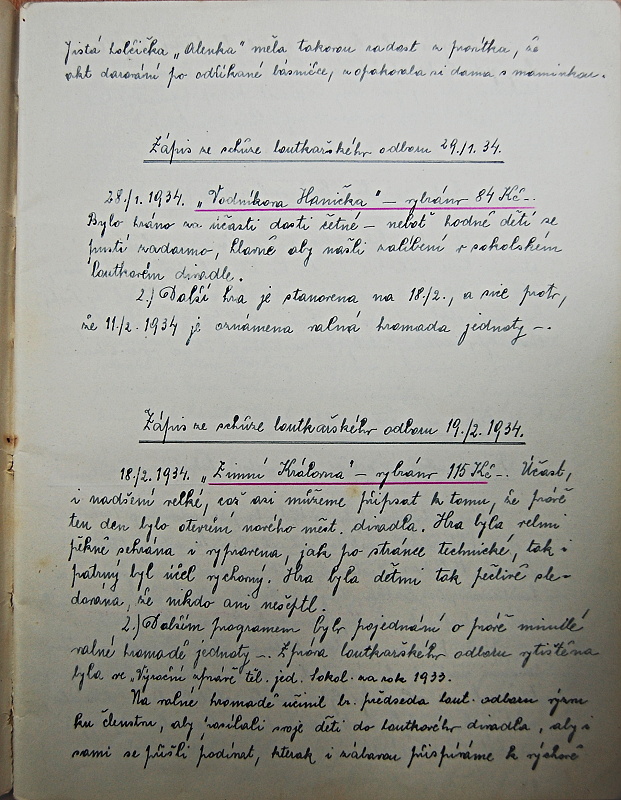 Jistá holčička „Alenka" měla takovou radost z prvítka, že
akt darování po odříkané básničce, zopakovala si doma s maminkou.
Zápis ze schůze loutkařského odboru 29./1. 34.
28./1. 1934. „Vodníkova Hanička" – vybráno 84 Kč –.
Bylo hráno za účasti dosti četné – neboť hodně dětí se
pustí zadarmo, hlavně aby našli zalíbení v sokolském
loutkovém divadle.
2.) Další hra je stanovena na 18./2., a sice proto,
že 11./2. 1934 je oznámena valná hromada jednoty –.
Zápis ze schůze loutkařského odboru 19./2. 1934.
18./2. 1934. „Zimní Královna" – vybráno 115 Kč –. Účast,
i nadšení velké, což asi můžeme připsat k tomu, že právě
ten den bylo otevření nového měst. divadla. Hra byla velmi
pěkně sehrána i vypravena, jak po stránce technické, tak i
patrný byl účel výchovný. Hra byla dětmi tak pečlivě sle-
dována, že nikdo ani nešeptl.
2.) Dalším programem bylo pojednání o právě minulé
valné hromadě jednoty –. Zpráva loutkařského odboru vytištěna
byla ve „Výroční zprávě těl. jed. Sokol. za rok 1933.
Na valné hromadě učinil br. předseda lout. odboru výzvu
ku členstvu, aby zasílali svoje děti do loutkového divadla, aby i
sami se přišli podívat, kterak i zábavou přispíváme k výchově